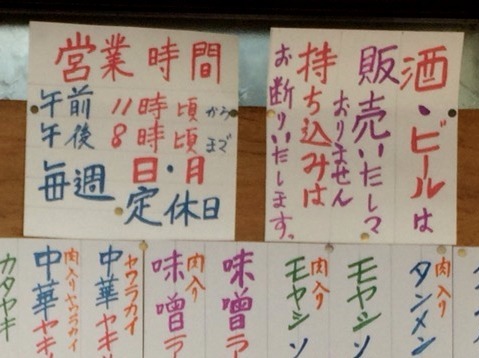 営業時間
午前 11時頃から
午後 8時頃まで
毎週 日・月
定休日
酒・ビールは
販売いたしマ
おりません
持ち込みは
お断りいたします。
肉入り
タンメン
モヤシソ
肉入り
モヤシソ
味噌ラ
肉入り
味噌ラ
ヤワラカイ
中華ヤキ
肉入りヤワラカイ
中華ヤキ
カタヤキ